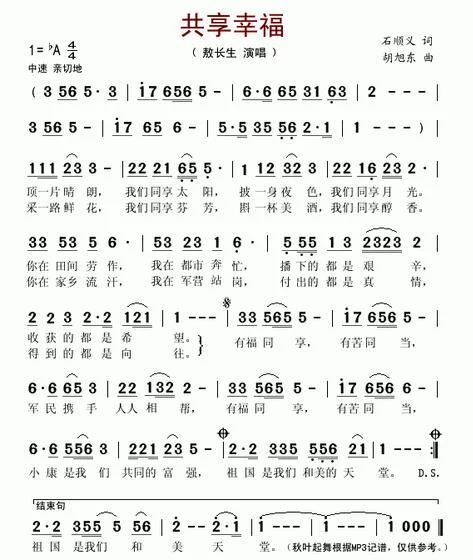 共享幸福
（ 敖长生 演唱 ）
1= ♭A 4/4
石顺义 词
胡旭东 曲
中速 亲切地
( 3 56 5· 3 | i7 656 5 - | 6·6 65 31 63 | 2 - - - |
3 56 5 - | i7 65 6 - | 5·5 35 56 2·1 | 1 - - - )
111 23 3 - | 22 21 65 5 · | 1 12 33 63 · | 22 16 23 · |
顶一片晴朗， 我们同享太阳， 披一身夜色，我们同享月光。
采一路鲜花， 我们同享芬芳， 斟一杯美酒，我们同享醇香。
33 53 5 - | 53 23 1 6 · | 5 55 1 3 | 2323 2 - |
你在田间劳作， 我在都市奔忙， 播下的都是艰辛，
你在家乡流汗， 我在军营站岗， 付出的都是真情，
2 2 3 2·2 | 121 1 - | 3·5 1765 | 6·1 653 |
收获的都是希望。 有福同享， 有苦同当，
得到的都是向往。
6·6 63 | 22 132 2 - | 3·5 1765 | 6·1 653 |
军民携手 人人相帮， 有福同享， 有苦同当，
6·6 5563 | 221 23 5 - | 2·2 335 556 2·1 | 1 - - :||
小康是我们 共同的富强， 祖国是我们和美的天堂。 D.S.
结束句
2·2 355 5 56 | 2 - 2·i | i 000 | i 000 ||
祖国是我们 和 美 天 堂。 （秋叶起舞根据MP3记谱，仅供参考。）